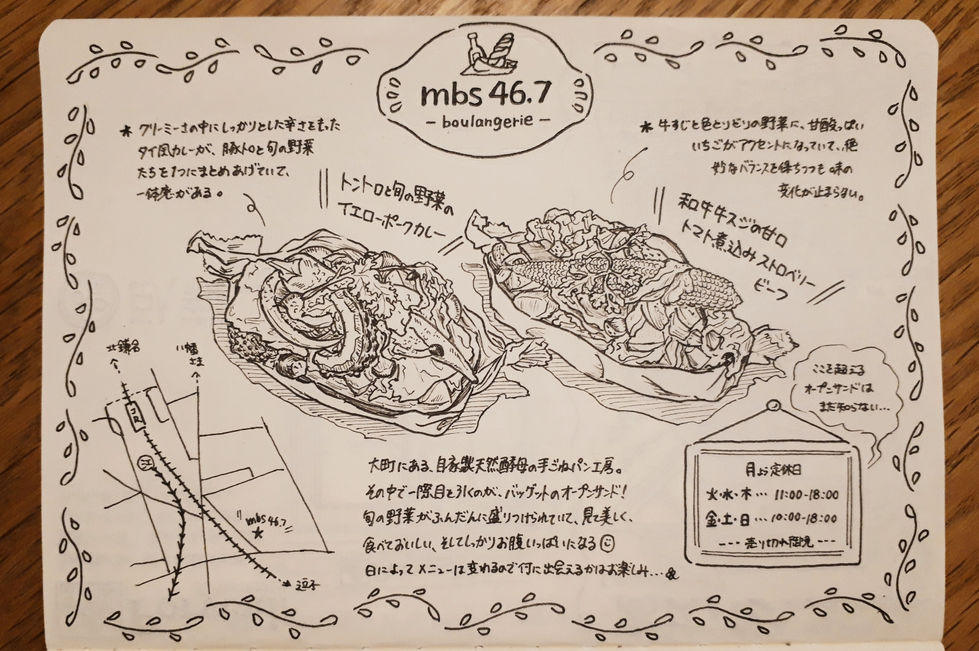 mbs 46.7
- boulangerie -
★ クリーミーさの中にしっかりとした辛さをもった
タイ風カレーが、豚トロと旬の野菜
たちを1つにまとめあげていて、
一体感がある。
トントロと旬の野菜の
イエローポークカレー
★ 牛すじと色とりどりの野菜に、甘酸っぱい
いちごがアクセントになっていて、絶
妙なバランスを保ちつつも味の
変化が止まらない。
和牛牛スジの甘口
トマト煮込みストロベリー
ビーフ
北鎌倉
八幡
さま
mbs 46.7
★
逗子
ここを超える
オープンサンドは
まだ知らない…
月お定休日
火・水・木… 11:00-18:00
金・土・日… 10:00-18:00
--- 売り切れ閉店 ---
大町にある、自家製天然酵母の手ごねパン工房。
その中で一際目を引くのが、バゲットのオープンサンド！
旬の野菜がふんだんに盛りつけられていて、見て美しく、
食べておいしい、そしてしっかりお腹いっぱいになる
日によってメニューは変わるので何に出会えるかはお楽しみ…